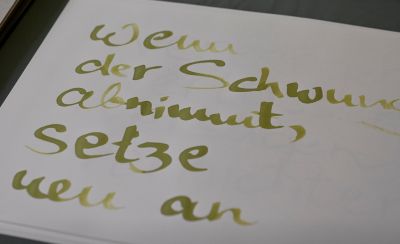 Wenn
der Schwung
abnimmt,
setze
neu an